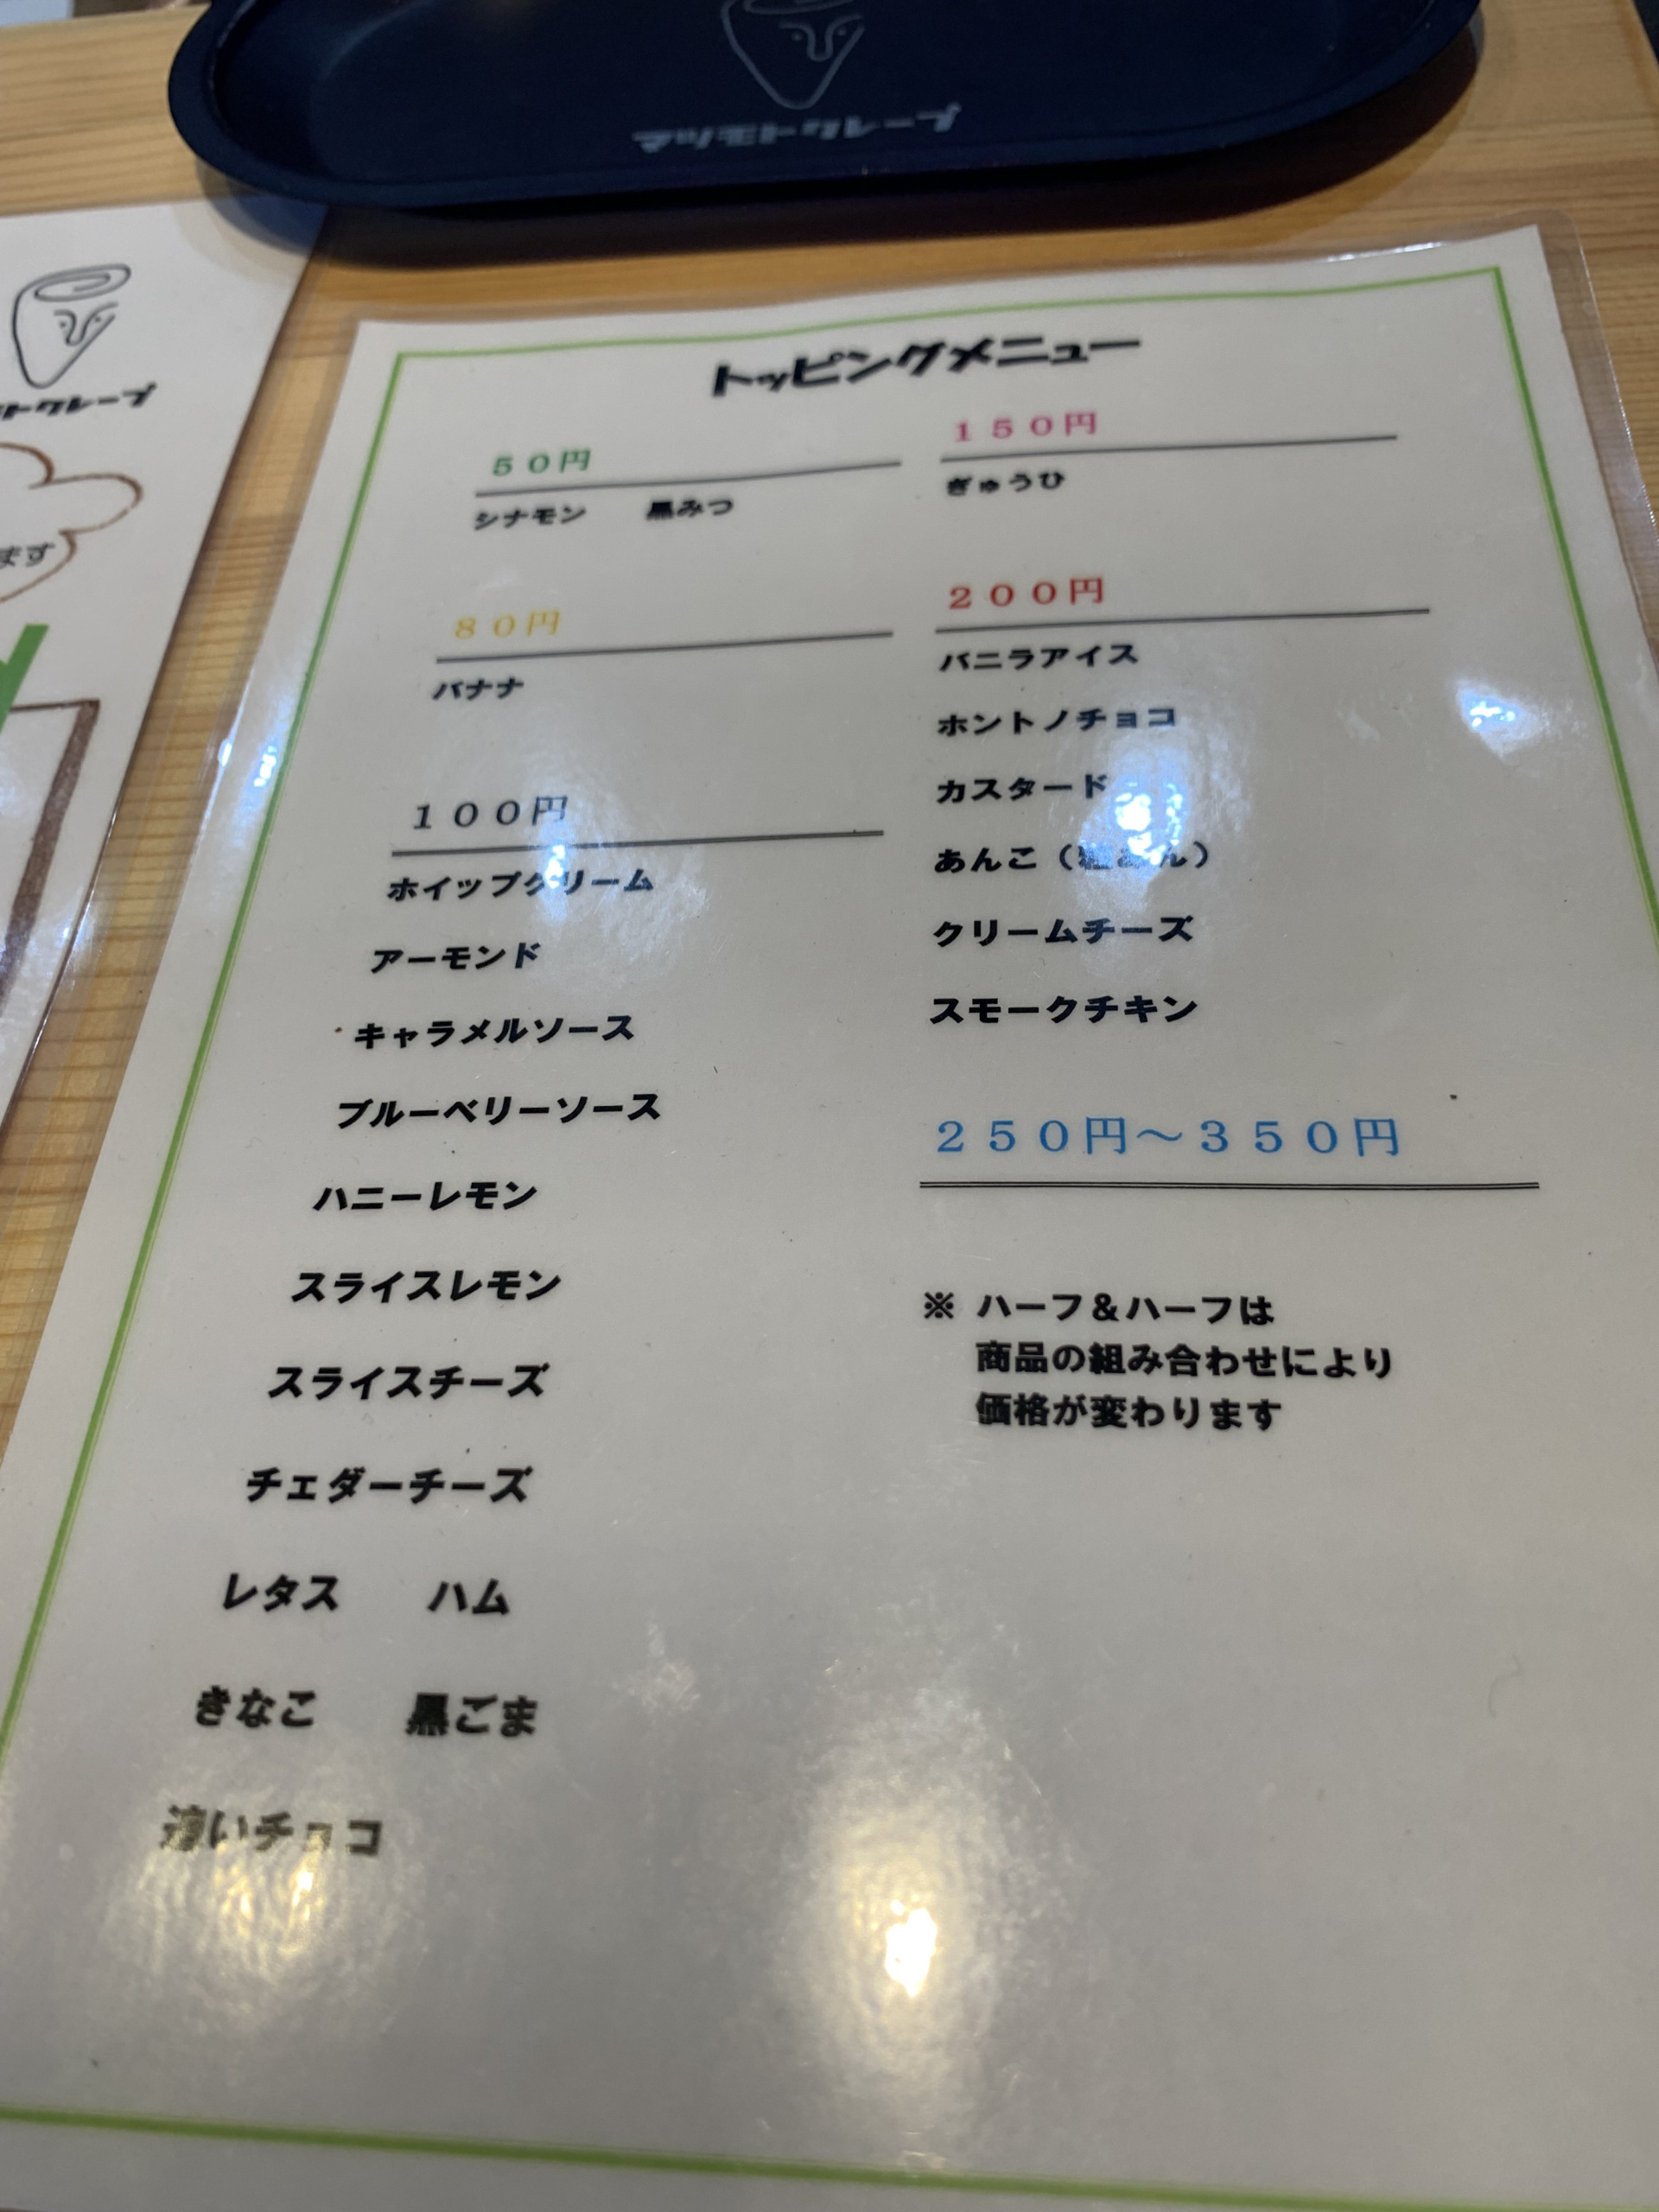 トクレープ
ます
トッピングメニュー
50円
シナモン 黒みつ
80円
バナナ
100円
ホイップクリーム
アーモンド
キャラメルソース
ブルーベリーソース
ハニーレモン
スライスレモン
スライスチーズ
チェダーチーズ
レタス ハム
きなこ 黒ごま
濃いチョコ
150円
ぎゅうひ
200円
バニラアイス
ホントノチョコ
カスタード
あんこ（粒あん）
クリームチーズ
スモークチキン
250円～350円
※ ハーフ＆ハーフは
商品の組み合わせにより
価格が変わります